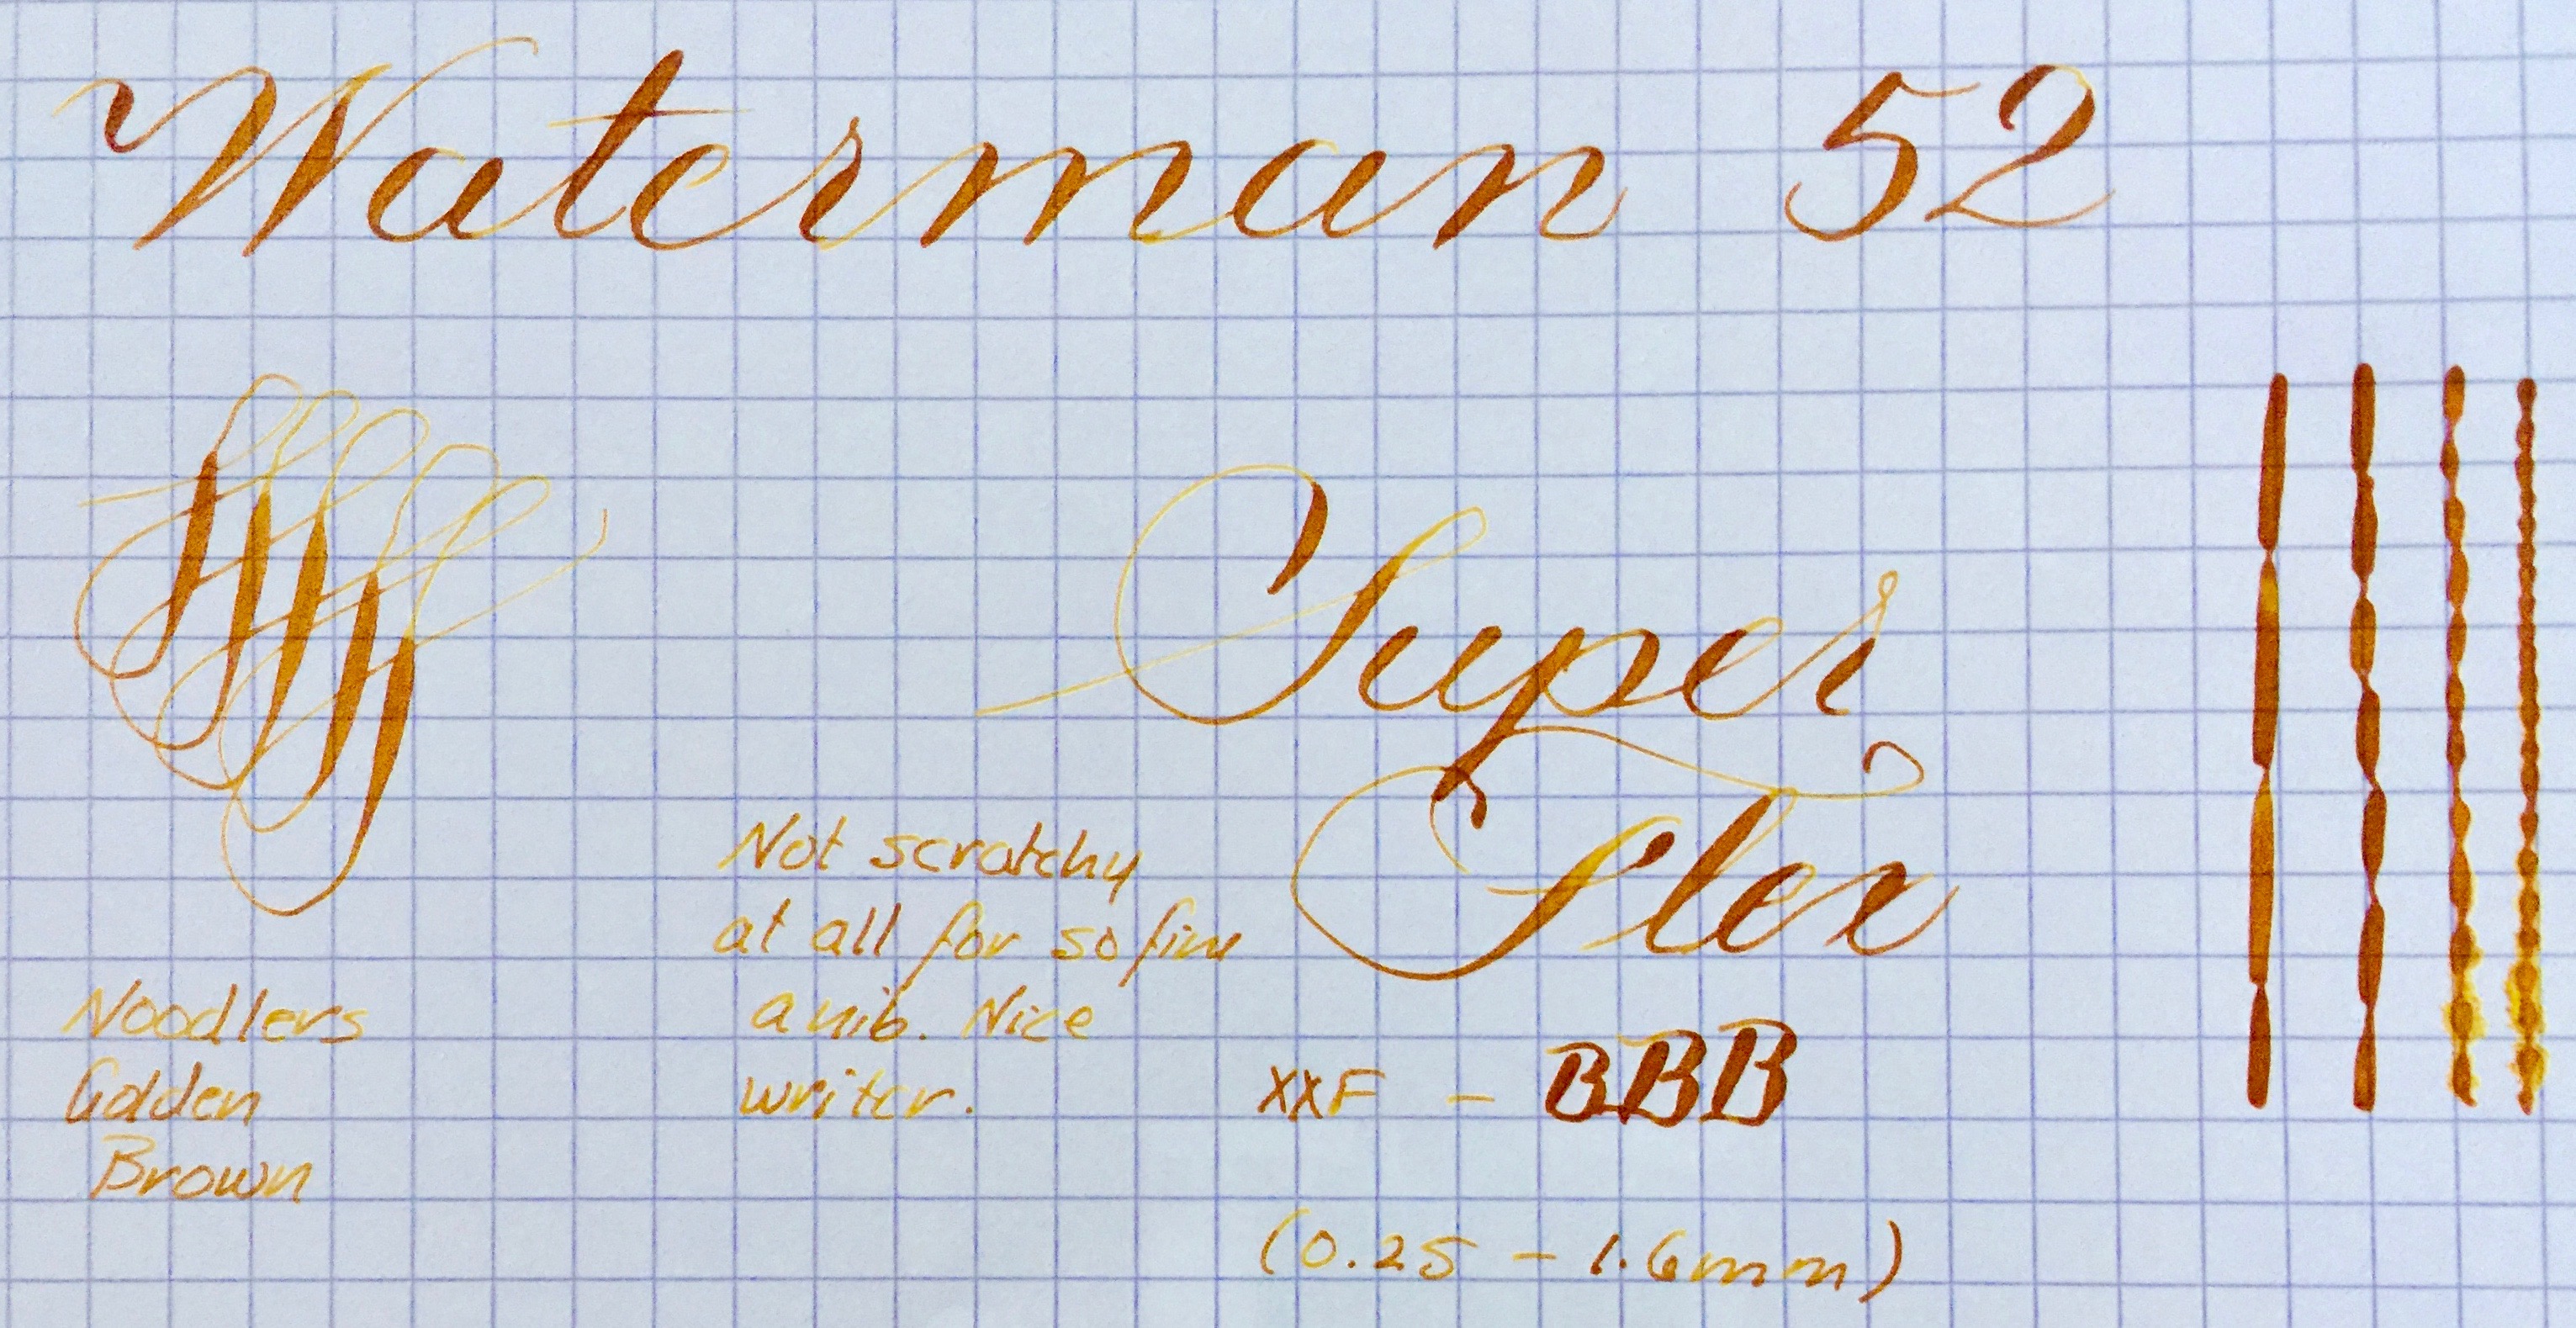 Waterman 52
Super
Flex
Not scratchy
at all for so fine
a nib. Nice
writer.
Noodlers
Golden
Brown
XXF - BBB
(0.25 - 1.6mm)